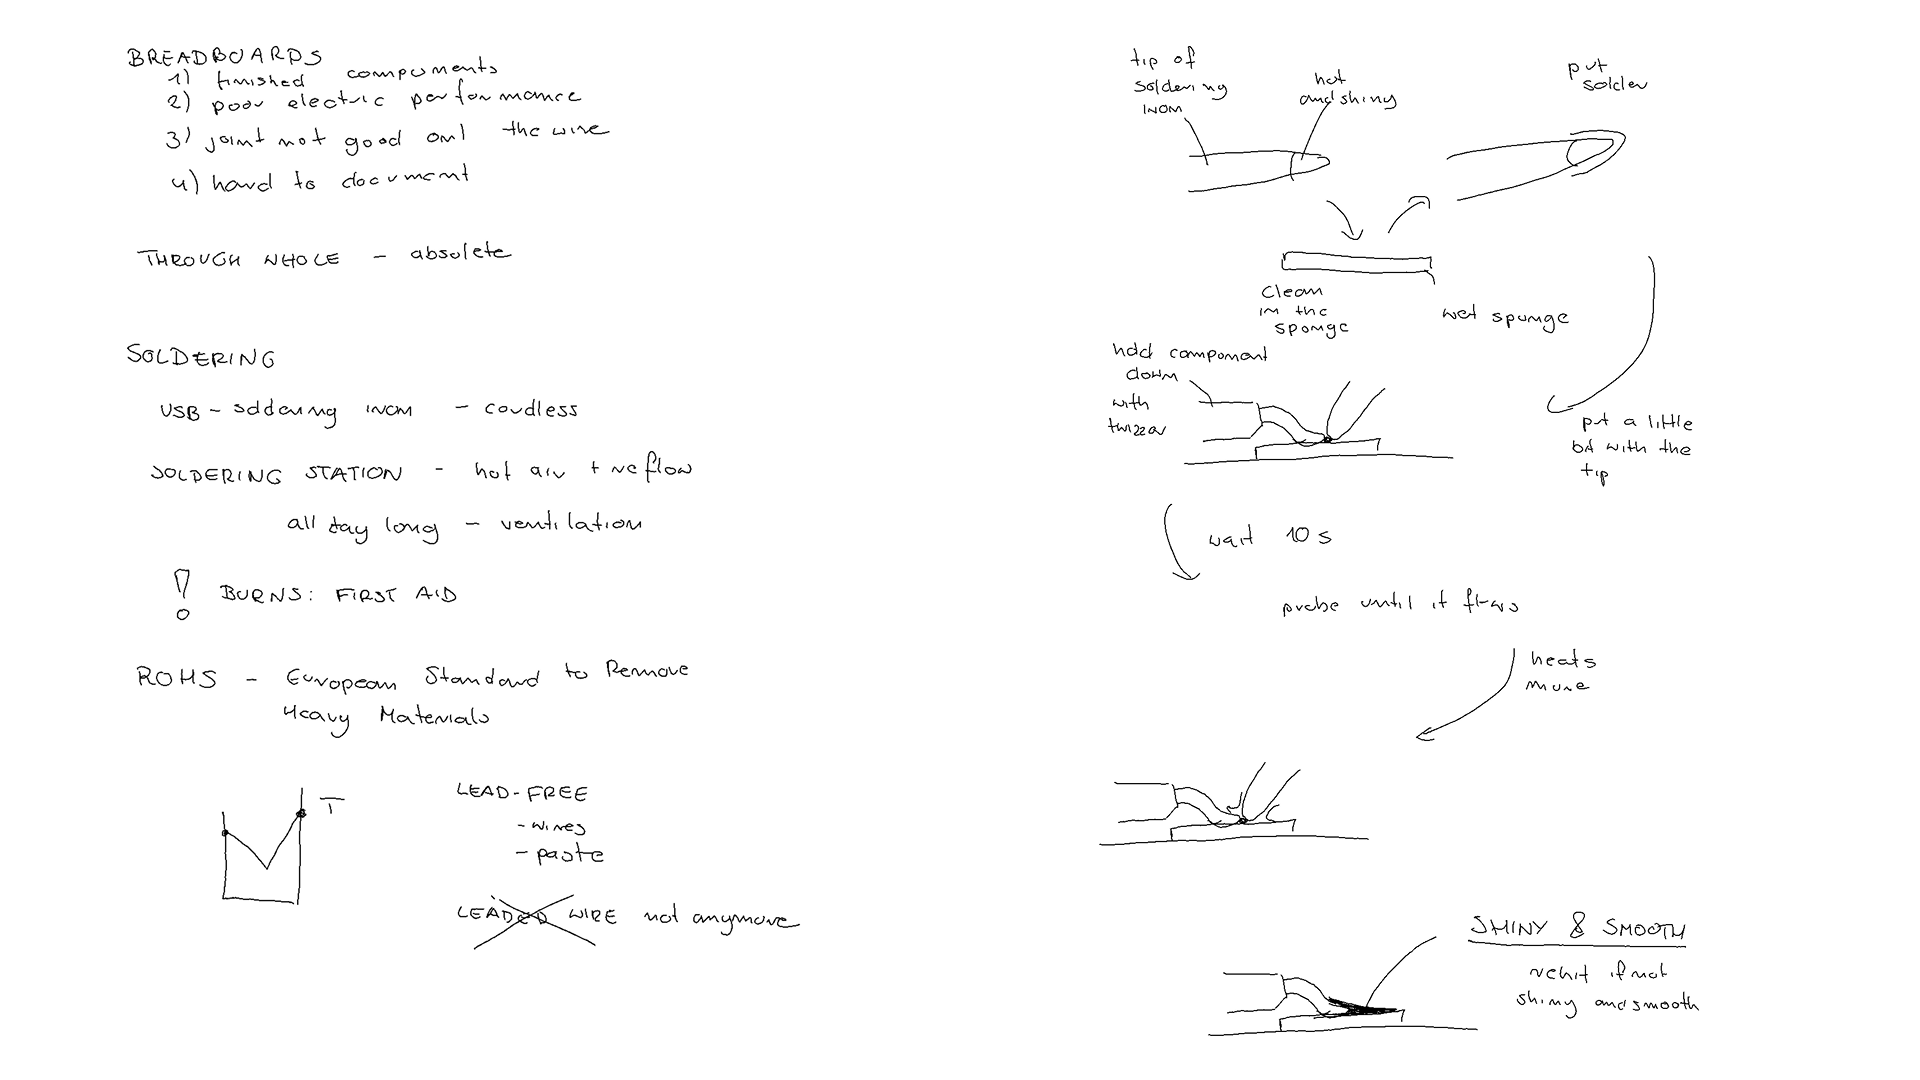 BREADBOARDS
1) finished components
2) poor electric performance
3) joint not good only the wire
4) hard to document
THROUGH WHOLE - absolete
SOLDERING
USB - soldering iron - cordless
SOLDERING STATION - hot air + reflow
all day long - ventilation
! BURNS: FIRST AID
ROHS - European Standard to Remove
Heavy Materials
T
LEAD-FREE
- wires
- paste
LEADED WIRE not anymore
tip of
soldering
iron
hot
and shiny
put
solder
clean
in the
sponge
wet sponge
hold component
down
with
twizzer
put a little
bit with the
tip
wait 10 s
probe until it flows
heats
more
SHINY & SMOOTH
rehit if not
shiny and smooth